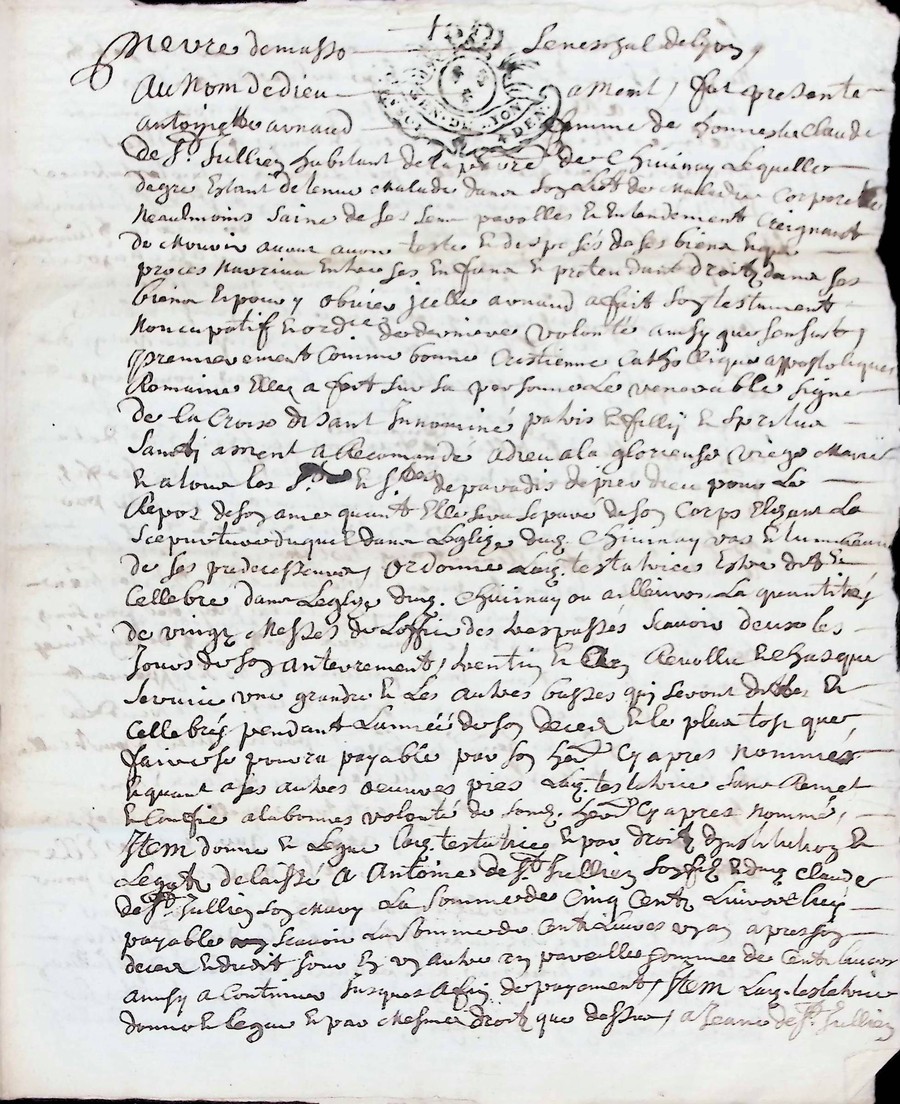 Senechal de Lyon
Au Nom de dieu ament, fut presente
antoinette arnaud femme de honneste Claude
de St. Jullien habitant de la de Chivinay Lequelle
degre Estant detenue Malade dans son Lict de Maladie Corporelle
Neaulmoins Saine de ses sens parolles Et Entendement Creignant
de Mourir avant avoir teste Et disposés de ses biens Et que
proces Narriva Entre ses Enfans Et pretendant droitz dans ses
biens Et pour y obvier jcelle arnaud a fait son testament
Noncupatif Et ordre de derniere volonté ainsy que sensuit,
premierement Comme bonne Crestienne Cathollique appostolique
Romaine Elle a fait sur sa personne Le venerable signe
de la Croix disant In nominé patris Et fillij Et Spiritus
Sancti ament a Recomandé a dieu a la glorieuse vierge Marie
Et a tous les Sts Et Stes de paradis de prier dieu pour Le
Repoz de son ame quant Elle sera separé de son Corps Elizant La
Scepulture duquel dans Leglize dud. Chivinay vas Et tumbeau
de ses predecesseurs, Ordonne Lad. testatrices Estre dit Et
Cellebré dans Leglize dud. Chivinay ou ailleurs La quantités
de vingt Messes de Loffice des trespassés Scavoir deux les
Jours de son anterement, trentin Et an Revollu Et chasque
Service une grande Et Les autres basses qui seront dites Et
Cellebrés pendant Lanneé de son deces Et le plus tost que
faire se poura payable par son her. Cy apres nommés
Et quant a ses autres oeuvres pies Lad. testatrice sans Remet
Et Confie a la bonnes volonté de sond. her. Cy apres Nommé,
Item donne Et Legue lad. testatrice Et par droit dinstitution Et
Legatz delaissé A Antoine de St. Jullien Son filz Et dud. Claude
de St. Jullien Son Mary La Somme de Cinq Centz Livres
payable Scavoir La Somme de Cent Livres un an apres son
deces Et dudit Jour En un autre an pareille somme de Cent livres
ainsy a Continuer Jusques a fin de payement, Item Lad. testatrice
donne Et legue Et par Mesme droitz que dessus, a Jeane de St. Jullien